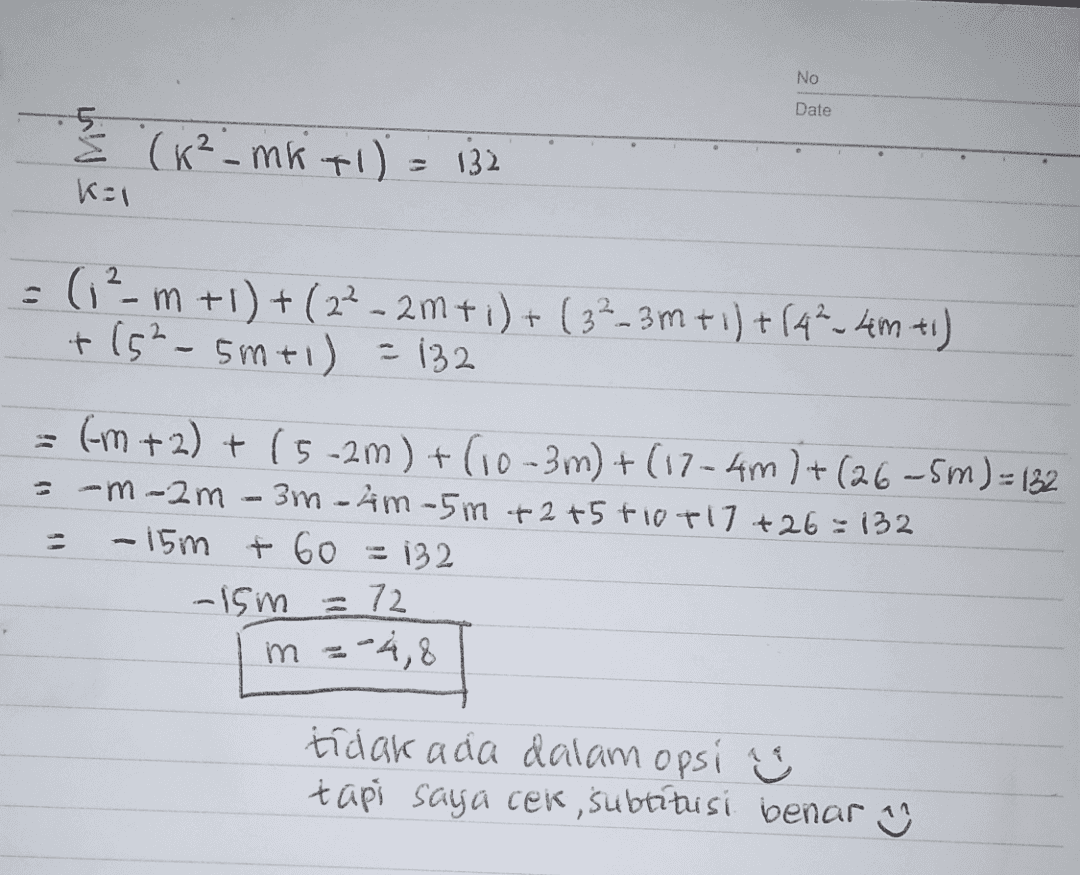 No
Date
5
Σ (k² - mk + 1) = 132
k=1
= (1² - m + 1) + (2² - 2m + 1) + (3² - 3m + 1) + (4² - 4m + 1)
+ (5² - 5m + 1) = 132
= (-m + 2) + (5 - 2m) + (10 - 3m) + (17 - 4m) + (26 - 5m) = 132
= -m - 2m - 3m - 4m - 5m + 2 + 5 + 10 + 17 + 26 = 132
= -15m + 60 = 132
-15m = 72
m = -4,8
tidak ada dalam opsi
tapi saya cek, subtitusi benar